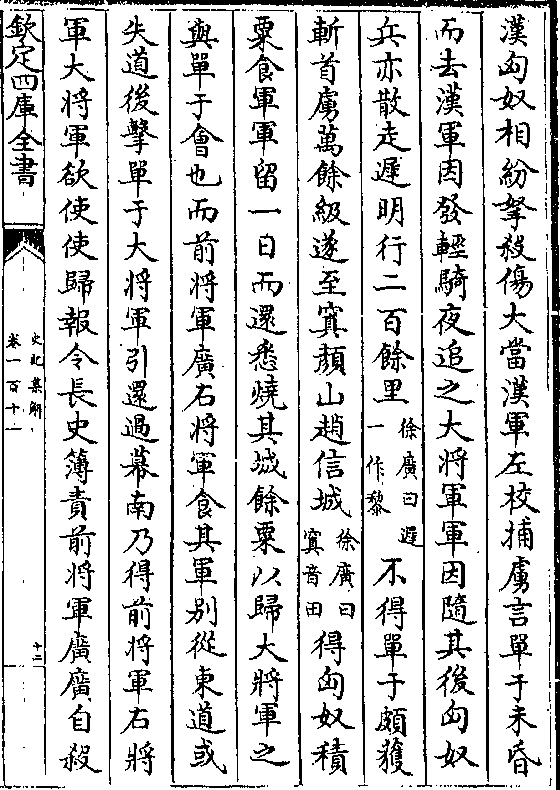 漢匈奴相紛挐殺傷大當漢軍左校捕虜言單于未昏
而去漢軍因發輕騎夜追之大將軍軍因隨其後匈奴
兵亦散走遲明行二百餘里徐廣曰遲一作黎不得單于頗獲
斬首虜萬餘級遂至窴顔山趙信城徐廣曰窴音田得匈奴積
粟食軍軍留一日而還悉燒其城餘粟以歸大將軍之
與單于會也而前將軍廣右將軍食其軍別從東道或
失道後擊單于大將軍引還過幕南乃得前將軍右將
軍大將軍欲使使歸報令長史簿責前將軍廣廣自殺
欽定四庫全書
史記集解
卷一百十一
十二